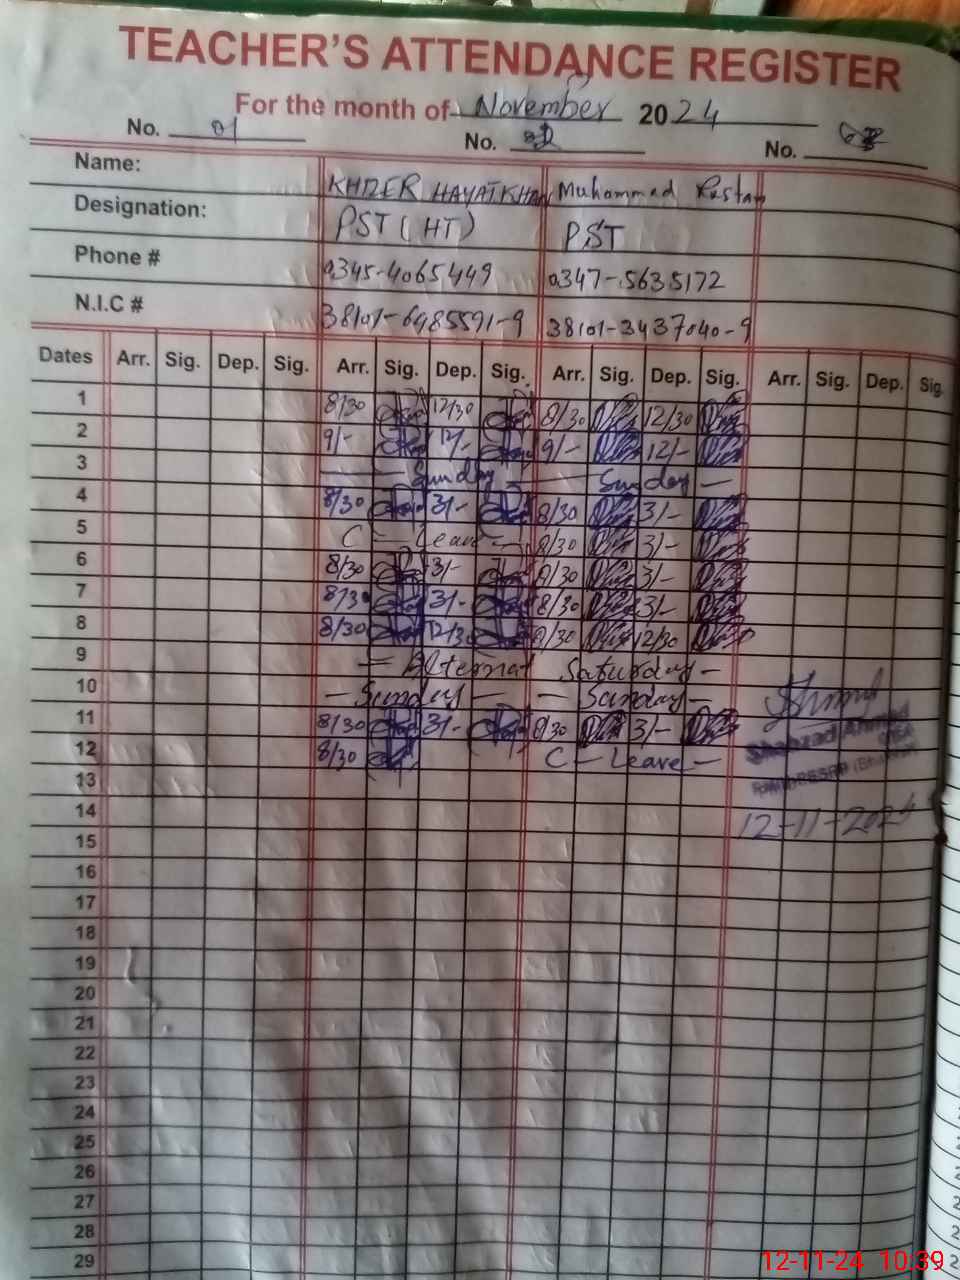 TEACHER'S ATTENDANCE REGISTER
For the month of November 2024
No. 01 No. No.
Name: KHIZER HAYAT KHAN Muhammad Rustam
Designation: PST (HT) PST
Phone # 0345-4065449 0347-5635172
N.I.C # 38101-6985591-9 38101-3437040-9
Dates Arr. Sig. Dep. Sig. Arr. Sig. Dep. Sig. Arr. Sig. Dep. Sig. Arr. Sig. Dep. Sig.
1 8/30 12/30 8/30 12/30
2 9/- 12/- 9/- 12/-
3 — Sunday — Sunday —
4 8/30 3/- 8/30 3/-
5 C — Leave — 8/30 3/-
6 8/30 3/- 8/30 3/-
7 8/30 3/- 8/30 3/-
8 8/30 12/30 8/30 12/30
9 = Alternat Saturday -
10 - Sunday — — Sunday -
11 8/30 3/- 8/30 3/-
12 8/30 C - Leave -
Shahzad Ahmed
13
14 12-11-2024
15
16
17
18
19
20
21
22
23
24
25
26
27
28
29
12-11-24 10:39